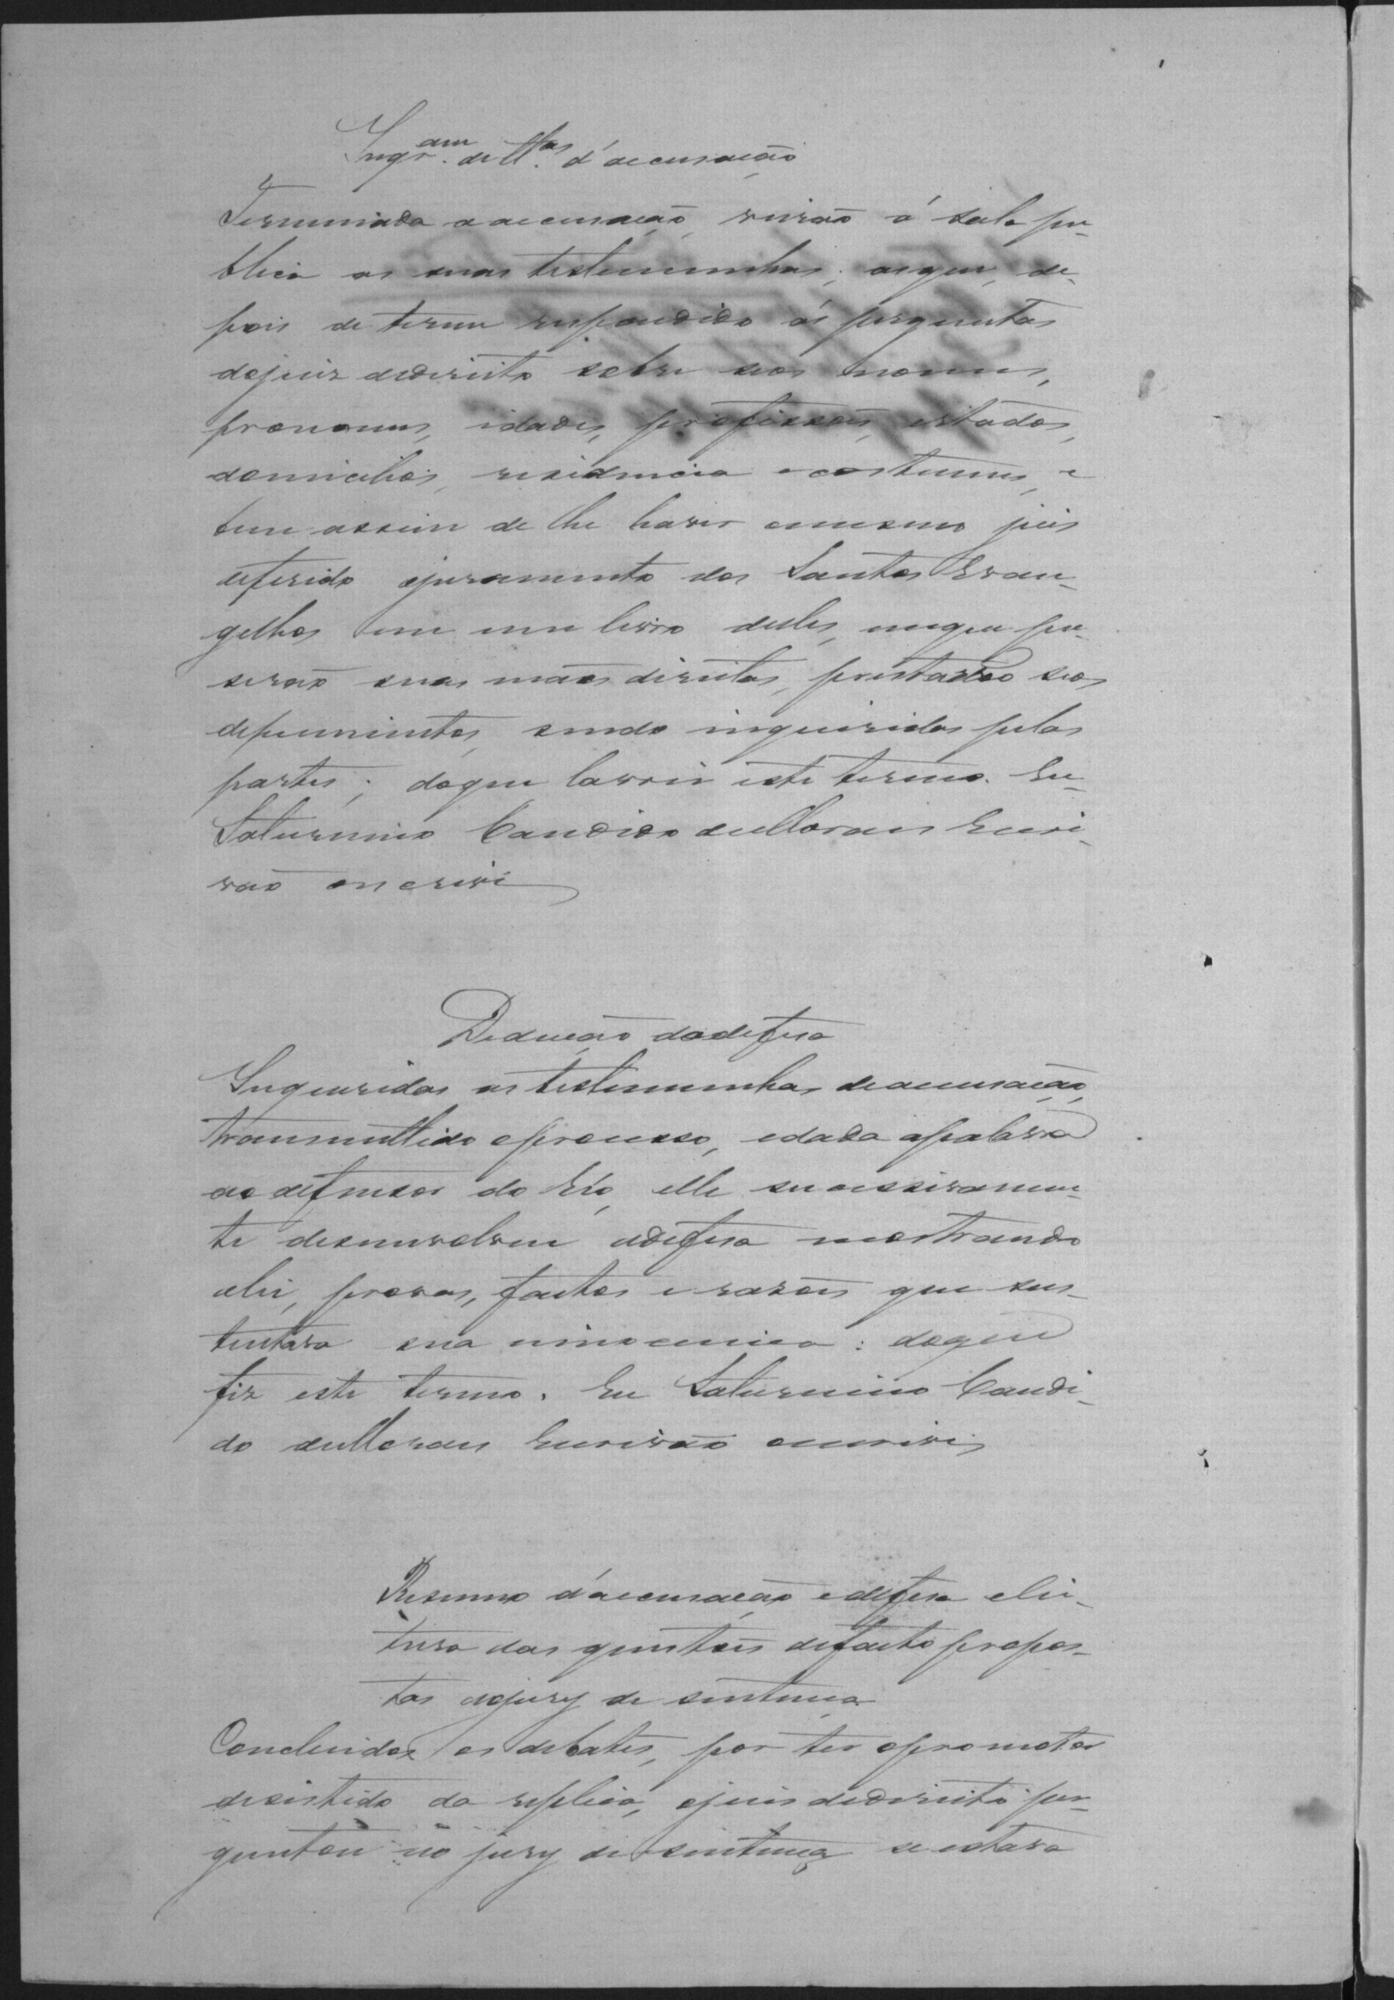 Inqr.am de tt.as d'accusação
Terminada a accusação, virão á sala pu-
blica as suas testemunhas, as que, de-
pois de terem respondido ás perguntas
do juiz de direito sobre seos nomes,
pronomes, idades, profissões, estados,
domicilios, residencia e costumes, e
bem assim de lhe haver o mesmo juis
deferido o juramento dos Santos Evan-
gelhos em um livro delles, em que pu-
serão suas mãos direitas, prestarão seos
depoimentos, sendo inquiridas pelas
partes; do que lavrei este termo. Eu
Saturnino Candido de Moraes Escri-
vão o escrivi

Deducção da defesa
Inqueridas as testemunhas de accusação,
transmittido o processo, e dada a palavra
ao defensor do Réo, elle successivamen-
te desenvolveu a defesa mostrando
a lei, provas, factos e rasões que sus-
tentava sua innocencia: do que
fiz este termo. Eu Saturnino Candi-
do de Moraes Escrivão o escrivi

Resumo d'accusação e defesa e lei-
tura das questões de facto propos-
tas ao jury de sentença
Concluidos os debates, por ter o promotor
desistido da replica, o juis de direito per-
guntou ao jury de sentença se estava